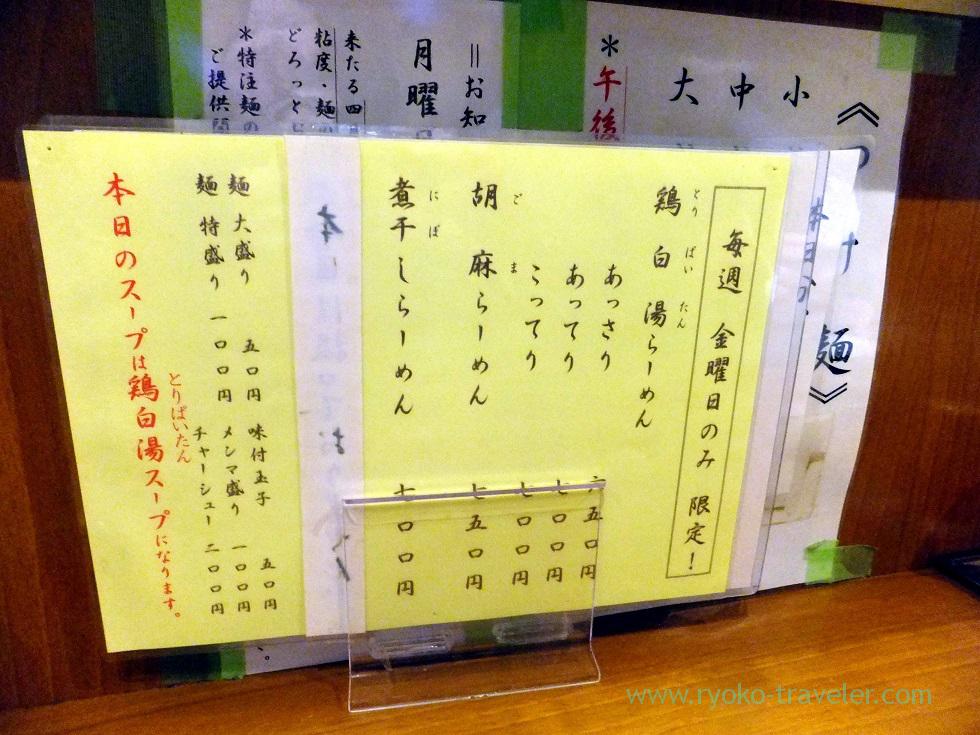 《つけ麺》
小
中
大
＊午後
＝お知
月曜
来たる四
粘度・麺の
どろっと
＊特注麺の
ご提供
毎週 金曜日のみ 限定！
とり ぱい たん
鶏白湯らーめん
あっさり 六五〇円
あってり 七〇〇円
こってり 七〇〇円
ご ま
胡麻らーめん 七五〇円
にぼ
煮干しらーめん 七〇〇円
味付玉子 五〇円
麺 大盛り 五〇円 メンマ盛り 一〇〇円
麺 特盛り 一〇〇円 チャーシュー 二〇〇円
とりぱいたん
本日のスープは鶏白湯スープになります。
www.ryoko-traveler.com